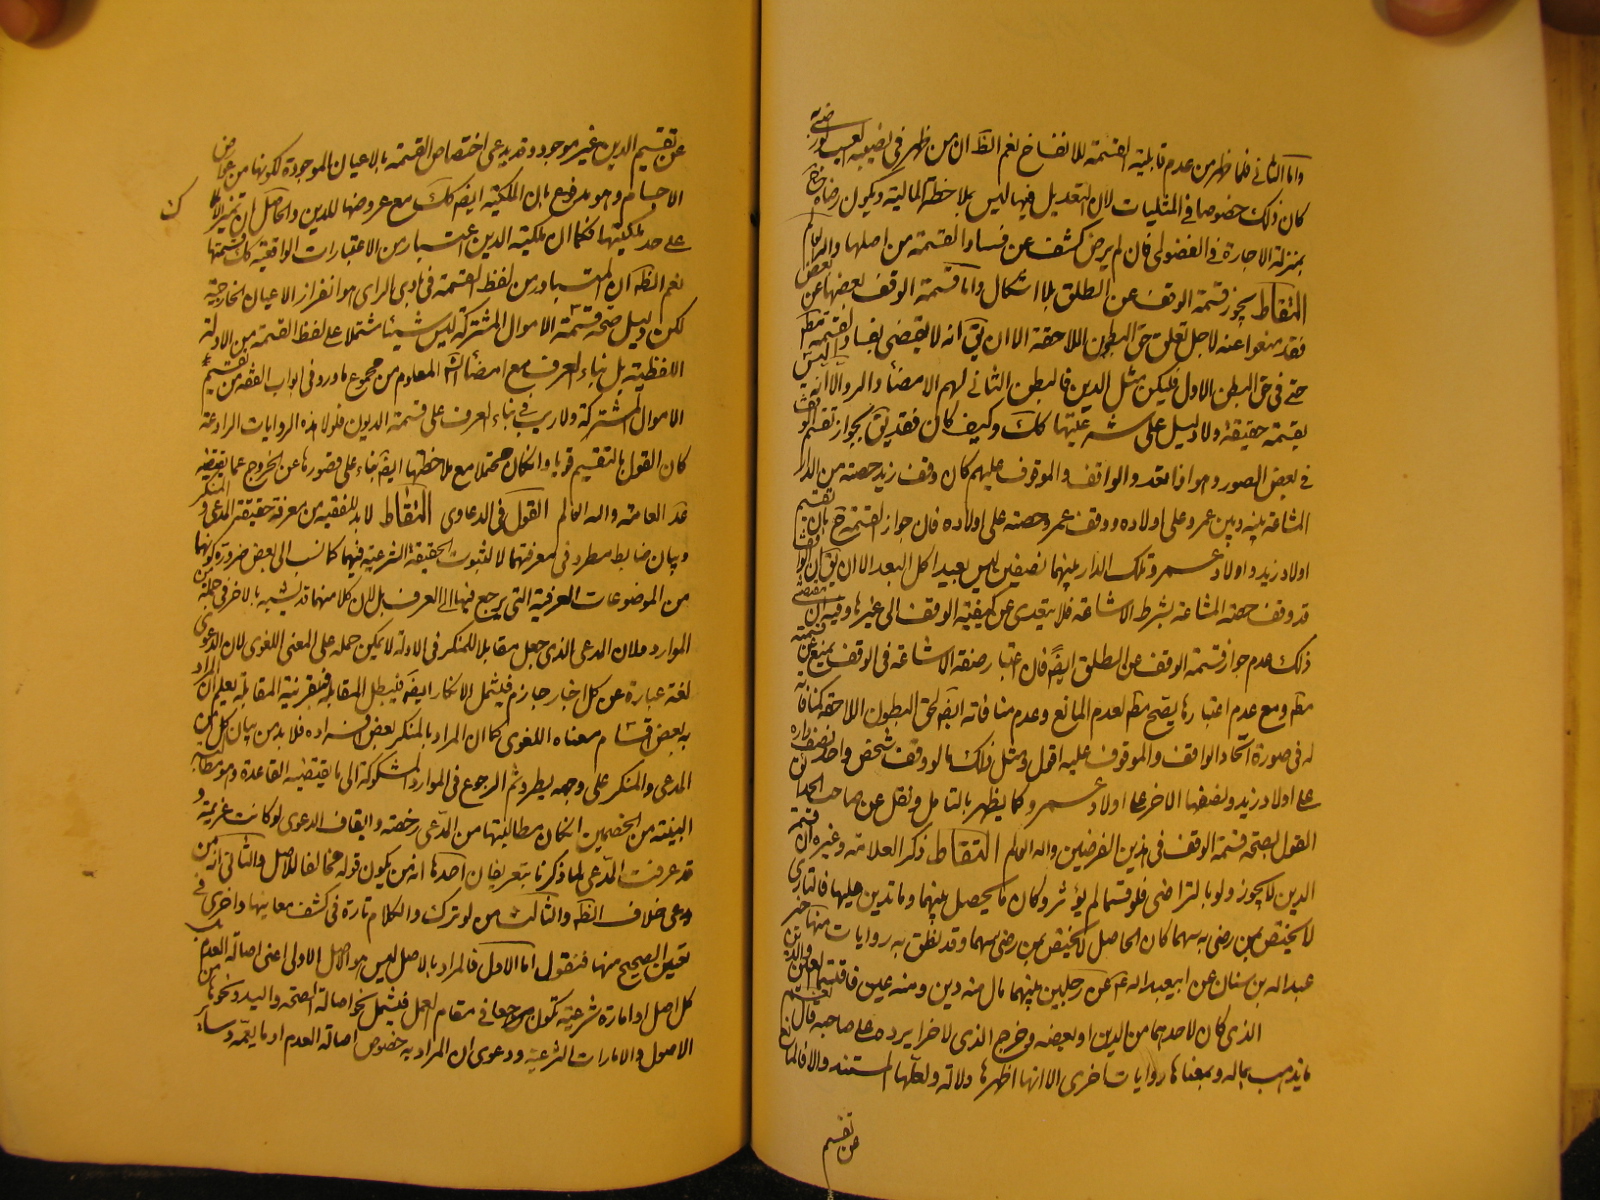 واما الثاني فلما ظهر من عدم قابلية القسمة للانفساخ نعم الظ ان من ظهر في نصيبه العيب
كان ذلك خصوصا في المثليات لان التعديل فيها ليس بملاحظة المالية ويكون رضاه ح
بمنزلة الاجازة في الفضولي فان لم يرض كشف عن فساد القسمة من اصلها والله العالم
التقاط يجوز قسمة الوقف عن الطلق بلا اشكال واما قسمة الوقف بعضها عن بعض
فقد منعوا عنه لاجل تعلق حق البطون اللاحقة الا ان يق انه لا يقتضي فساد القسمة مط
حتى في حق البطن الاول فليكن مثل الدين فالبطن الثاني لهم الامضاء والرد الا انه ليس
بقسمة حقيقة ولا دليل على شرعيتها كك وكيف كان فقد يق بجواز تقسيم الوقف
في بعض الصور وهو اذا تعدد الواقف والموقوف عليهم كان وقف زيد حصته من الدار
المشاعة بينه وبين عمرو على اولاده ووقف عمرو حصته على اولاده فان جواز القسمة ح بان تقسيم
اولاد زيد واولاد عمرو تلك الدار بينهما نصفين ليس بعيدا كل البعد الا ان يق ان الواقف
قد وقف حصته المشاعة بشرط الاشاعة فلا يتعدى عن كيفية الوقف الى غيرها وفيه ان مقتضى
ذلك عدم جواز قسمة الوقف عن الطلق ايضا فان اعتبار صفة الاشاعة في الوقف يمنع عن قسمته
مط ومع عدم اعتبارها يصح مط لعدم المانع وعدم منافاته ايض لحق البطون اللاحقة كمنافاته
له في صورة اتحاد الواقف والموقوف عليه اقول ومثل ذلك ما لو وقف شخص واحد نصف داره
على اولاد زيد ونصفها الاخر على اولاد عمرو كما يظهر بالتامل ونقل عن صاحب الحدائق
القول بصحة قسمة الوقف في هذين الفرضين والله العالم التقاط ذكر العلامة وغيره ان قسمة
الدين لا يجوز ولو بالتراضي فلو قسما لم يؤثر وكان ما يحصل بينهما وما تدين عليها فالتاوي
لا يختص بمن رضى به سهما كان الحاصل لا يختص بمن رضى سهما وقد نطق به روايات منها خبر
عبد الله بن سنان عن ابيعبد الله ع عن رجلين بينهما مال منه دين ومنه عين فاقتسما العين والدين
الذي كان لاحدهما من الدين او بعضه وخرج الذي لاخر ايرد على صاحبه قال نعم
ما يذهب بماله وبمعناها روايات اخرى الا انها اظهرها دلالة ولعلها المستند والا فالمانع
عن تقسيم
عن تقسيم الدين غير موجود وقد يدعى اختصاص القسمة بالاعيان الموجودة لكونها من عوارض
الاجسام وهو مدفوع بان الملكية ايض كك مع عروضها للدين والحاصل ان تميز الاملاك
على حد ملكيتها فكما ان ملكية الدين اعتبار من الاعتبارات الواقعية كك قسمتها
نعم الظ ان المتبادر من لفظ القسمة في بادي الراي هو انفراز الاعيان الخارجية
لكن دليل صحة قسمة الاموال المشتركة ليس شيئا مشتملا على لفظ القسمة من الادلة
اللفظية بل بناء العرف مع امضاء الش المعلوم من مجموع ما ورد في ابواب الفقه من تقسيم
الاموال المشتركة ولا ريب في بناء العرف على قسمة الديون فلولا هذه الروايات الرادعة
كان القول بالتقسيم قويا وان كان محتملا مع ملاحظتها ايض بناء على قصورها عن الخروج عما يقتضيه
قد العامة والله العالم القول في الدعاوي التقاط لابد للفقيه من معرفة حقيقة المدعى والمنكر
وبيان ضابط مطرد في معرفتهما لا لثبوت الحقيقة الشرعية فيهما كما نسب الى بعض ضرورة كونهما
من الموضوعات العرفية التي يرجع فيها الى العرف بل لان كلا منهما قد يشتبه بالاخر في جملة من
الموارد ملان المدعى الذي جعل مقابلا للمنكر في الادلة لا يمكن حمله على المعنى اللغوي لان الدعوى
لغة عبارة عن كل اخبار جازم فيشمل الانكار ايض فيبطل المقابلة فبقرينة المقابلة يعلم ان المراد
به بعض اقسام معناه اللغوي كما ان المراد بالمنكر بعض افراده فلابد من بيان كل من
المدعى والمنكر على وجه يطرد ثم الرجوع في الموارد المشكوكة الى ما يقتضيه القاعدة وهو مطالبة
البينة من الخصمين ان كان مطالبتها من المدعى رخصة وايقاف الدعوى لو كانت عزيمة و
قد عرفت المدعى لما ذكرنا بتعريفات احدها انه من يكون قوله مخالفا للاصل والثاني انه من
يدعى خلاف الظ والثالث من لو ترك ترك والكلام تارة في كشف معانيها واخرى في
تعيين الصحيح منها فنقول اما الاول فالمراد بالاصل ليس هو الاصل الاولى اعنى اصالة العدم بل
كل اصل او امارة شرعية تكون مرجعا في مقام العمل فيشمل نحو اصالة الصحة واليد ونحوها من
الاصول والامارات الشرعية ودعوى ان المراد به خصوص اصالة العدم او ما يعمه وسائر